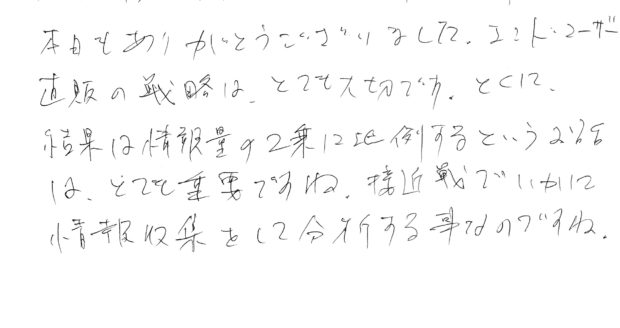 本日もありがとうございました。エンド・ユーザー
直販の戦略は、とても大切です。とくに、
結果は情報量の2乗に比例するというお話
は、とても重要ですね。接近戦でいかに
情報収集をして分析する事なのですね。